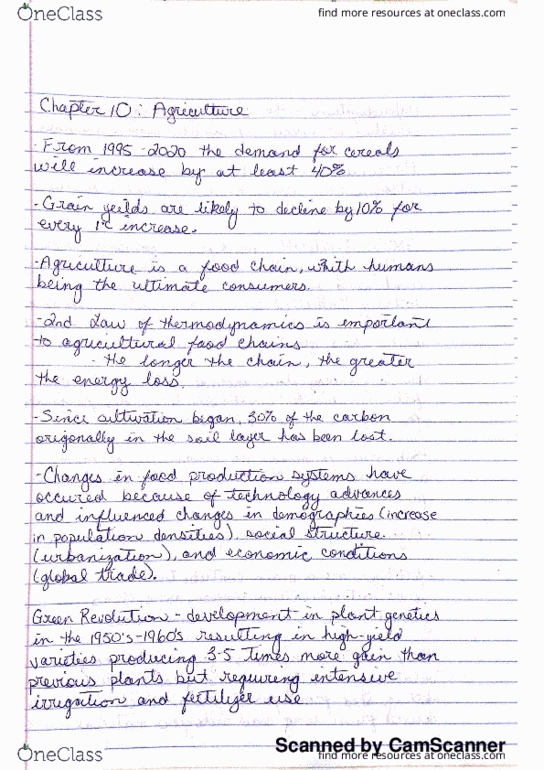 OneClass
find more resources at oneclass.com
Chapter 10: Agriculture
- From 1995-2020 the demand for cereals
will increase by at least 40%
- Grain yeilds are likely to decline by 10% for
every 1°c increase.
- Agriculture is a food chain, whith humans
being the ultimate consumers.
- 2nd Law of thermodynamics is important
to agricultural food chains
- the longer the chain, the greater
the energy loss.
- Since cultivation began, 30% of the carbon
origonally in the soil layer has been lost.
- Changes in food production systems have
occured because of technology advances
and influenced changes in demographies (increase
in population densities), social structure.
(urbanization), and economic conditions
(global trade).
Green Revolution - development in plant genetics
in the 1950's-1960s resulting in high-yield
varieties producing 3-5 times more gain than
previous plants but requiring intensive
irrigation and fertilizer use
Scanned by CamScanner
OneClass
find more resources at oneclass.com